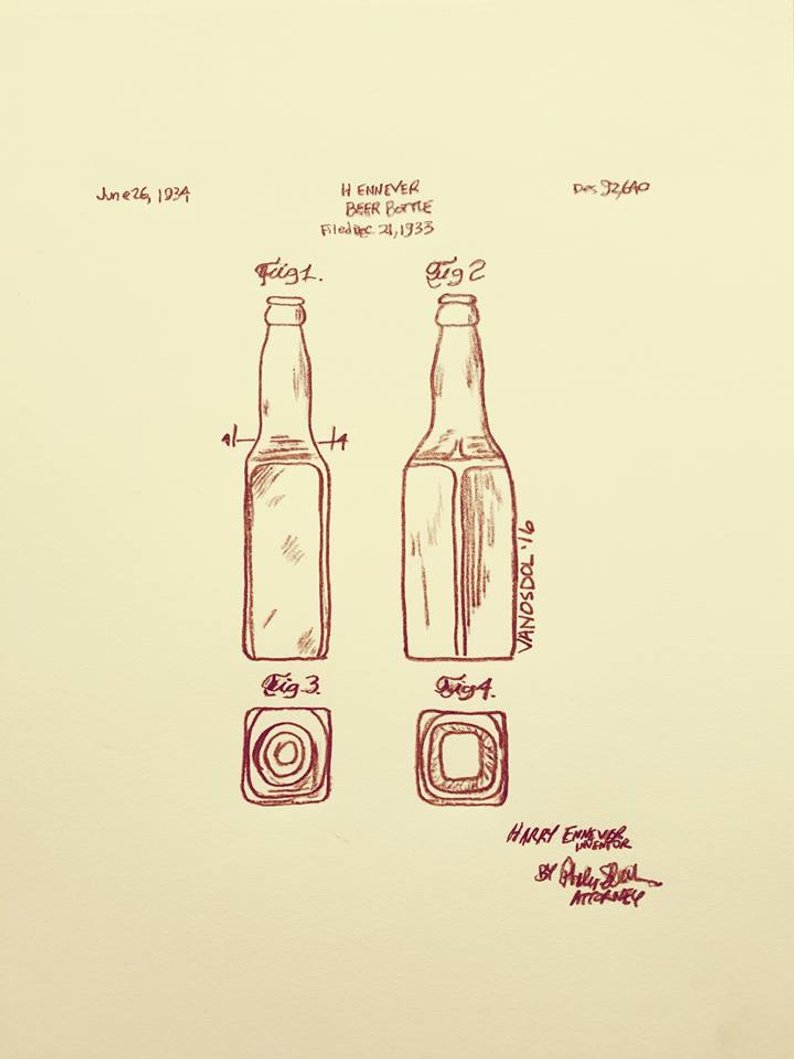 June 26, 1934
H ENNEVER
BEER BOTTLE
Filed Dec. 21, 1933
Des 92,640
Fig 1.
Fig 2
4
4
VANOSDOL '16
Fig 3.
Fig 4.
HARRY ENNEVER
INVENTOR
BY
ATTORNEY